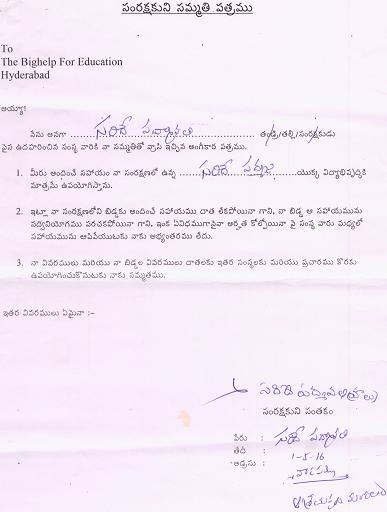 సంరక్షకుని సమ్మతి పత్రము
To
The Bighelp For Education
Hyderabad
అయ్యా!
నేను అనగా సరిదే పద్మావతి తండ్రి/తల్లి/సంరక్షకుడు
పైన ఉదహరించిన సంస్థ వారికి నా సమ్మతితో వ్రాసి ఇచ్చిన అంగీకార పత్రము.
1. మీరు అందించే సహాయం నా సంరక్షణలో ఉన్న సరిదే యొక్క విద్యాభివృద్ధికి
మాత్రమే ఉపయోగిస్తాను.
2. ఇట్లా నా సంరక్షణలోని బిడ్డకు అందించే సహాయము దాత లేకపోయినా గాని, నా బిడ్డ ఆ సహాయమును
సద్వినియోగము పరచకపోయినా గాని, ఇంక ఏవిధముగానైనా అర్హత కోల్పోయినా పై సంస్థ వారు మధ్యలో
సహాయమును ఆపివేయుటకు నాకు అభ్యంతరము లేదు.
3. నా వివరములు మరియు నా బిడ్డల వివరములు దాతలకు ఇతర సంస్థలకు మరియు ప్రచారము కొరకు
ఉపయోగించుకొనుటకు నాకు సమ్మతము.
ఇతర వివరములు ఏమైనా :-
సంరక్షకుని సంతకం
పేరు : సరిదే పద్మావతి
తేది : 1-5-16
అడ్రసు :